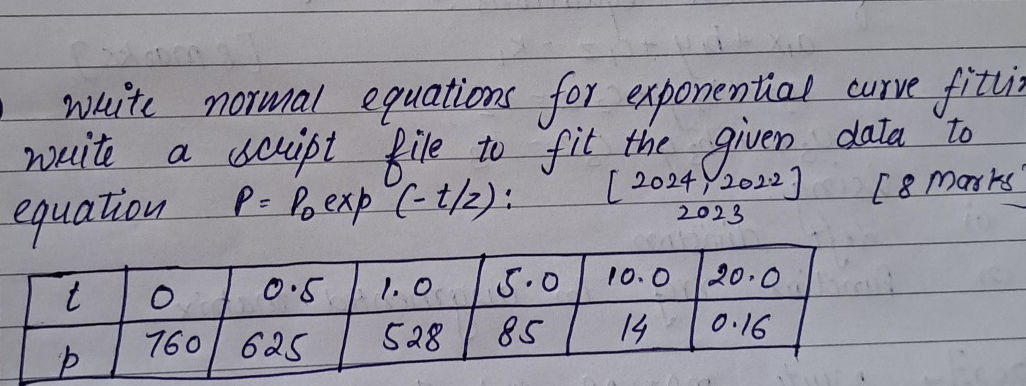 write normal equations for exponential curve
write a script file to fit the given data to
equation P = P₀ exp (-t/z): [2024, 2022] [8 Marks
2023
t 0 0.5 1.0 5.0 10.0 20.0
p 760 625 528 85 14 0.16